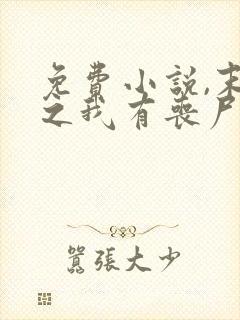 免費小説,末
之我有喪尸
囂張大少